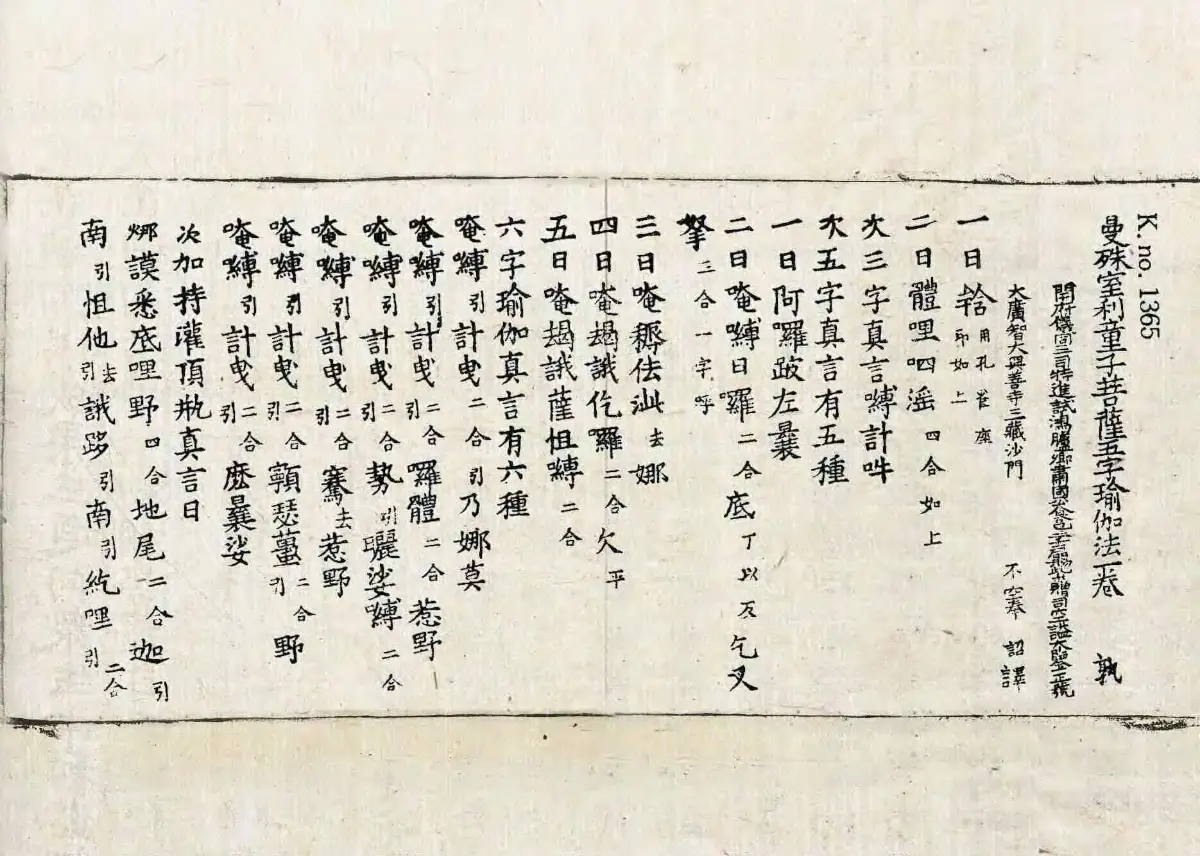 K. no. 1365
曼殊室利童子菩薩五字瑜伽法一卷 孰
開府儀同三司特進試鴻臚卿肅國公食邑三千戶賜紫贈司空謚大鑒正號
大廣智大興善寺三藏沙門 不空奉 詔譯
一曰𤚥用孔雀座印如上
二曰體哩呬淫四合如上
次三字真言嚩計吽
次五字真言有五種
一曰阿囉跛左曩
二曰唵嚩日囉二合底丁以反乞叉
拏三合一字呼
三曰唵耨佉泚去娜
四曰唵揭誐仡囉二合欠平
五曰唵揭誐薩怛嚩二合
六字瑜伽真言有六種
唵嚩引計曳二合引乃娜莫
唵嚩引計曳二合引囉體二合惹野
唵嚩引計曳二合引勢引曬娑嚩二合
唵嚩引計曳二合引騫去惹野
唵嚩引計曳二合引顆瑟薑二合引野
唵嚩引計曳二合引麽曩娑
次加持灌頂瓶真言曰
娜謨悉底哩野四合地尾二合迦引
南引怛他去引誐跢引南引紇哩二合引